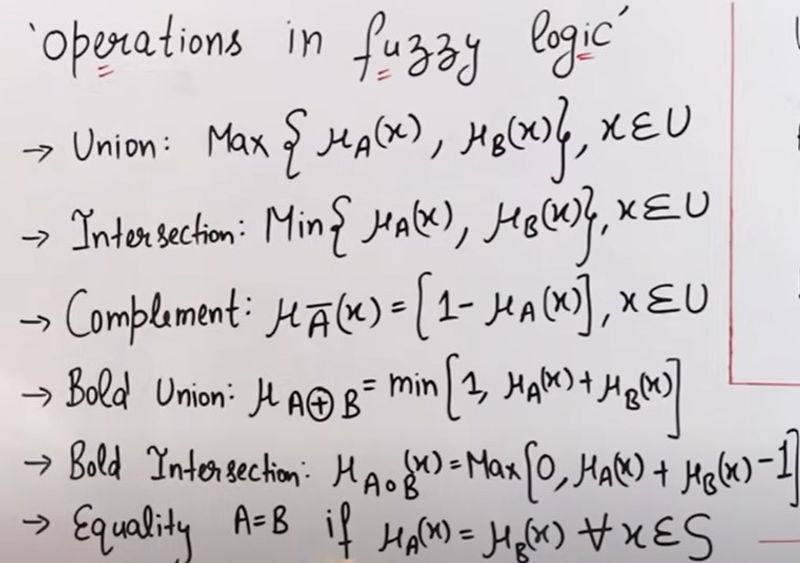 'operations in fuzzy logic'
→ Union: Max { μA(x), μB(x)}, x∈U
→ Intersection: Min{ μA(x), μB(x)}, x∈U
→ Complement: μĀ(x) = [1- μA(x)], x∈U
→ Bold Union: μA⊕B = min[1, μA(x)+μB(x)]
→ Bold Intersection: μA∘B(x) = Max[0, μA(x) + μB(x) -1]
→ Equality A=B if μA(x) = μB(x) ∀ x∈S